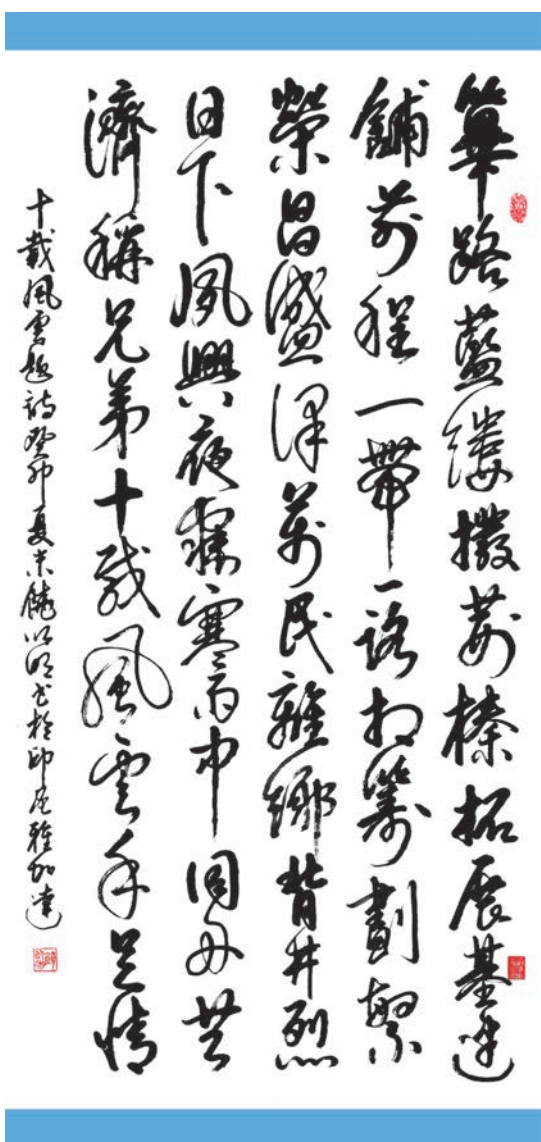 篳路藍縷撥荊榛拓展基建
鋪前程一帶一路相籌劃繁
榮昌盛澤萬民離鄉背井烈
日下夙興夜寐寒雨中同舟共
濟稱兄弟十載風雲手足情
十載風雲題詩癸卯夏末饒以明书於印尼雅加達